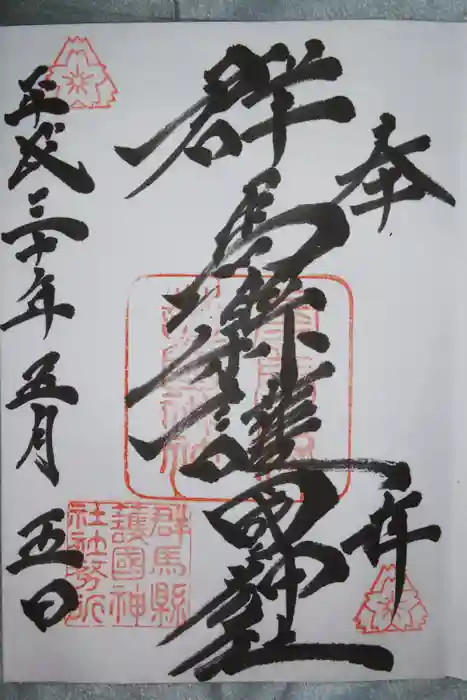 奉拝
群馬縣護國神社
平成三十年五月五日
群馬縣
護國神
社社務所